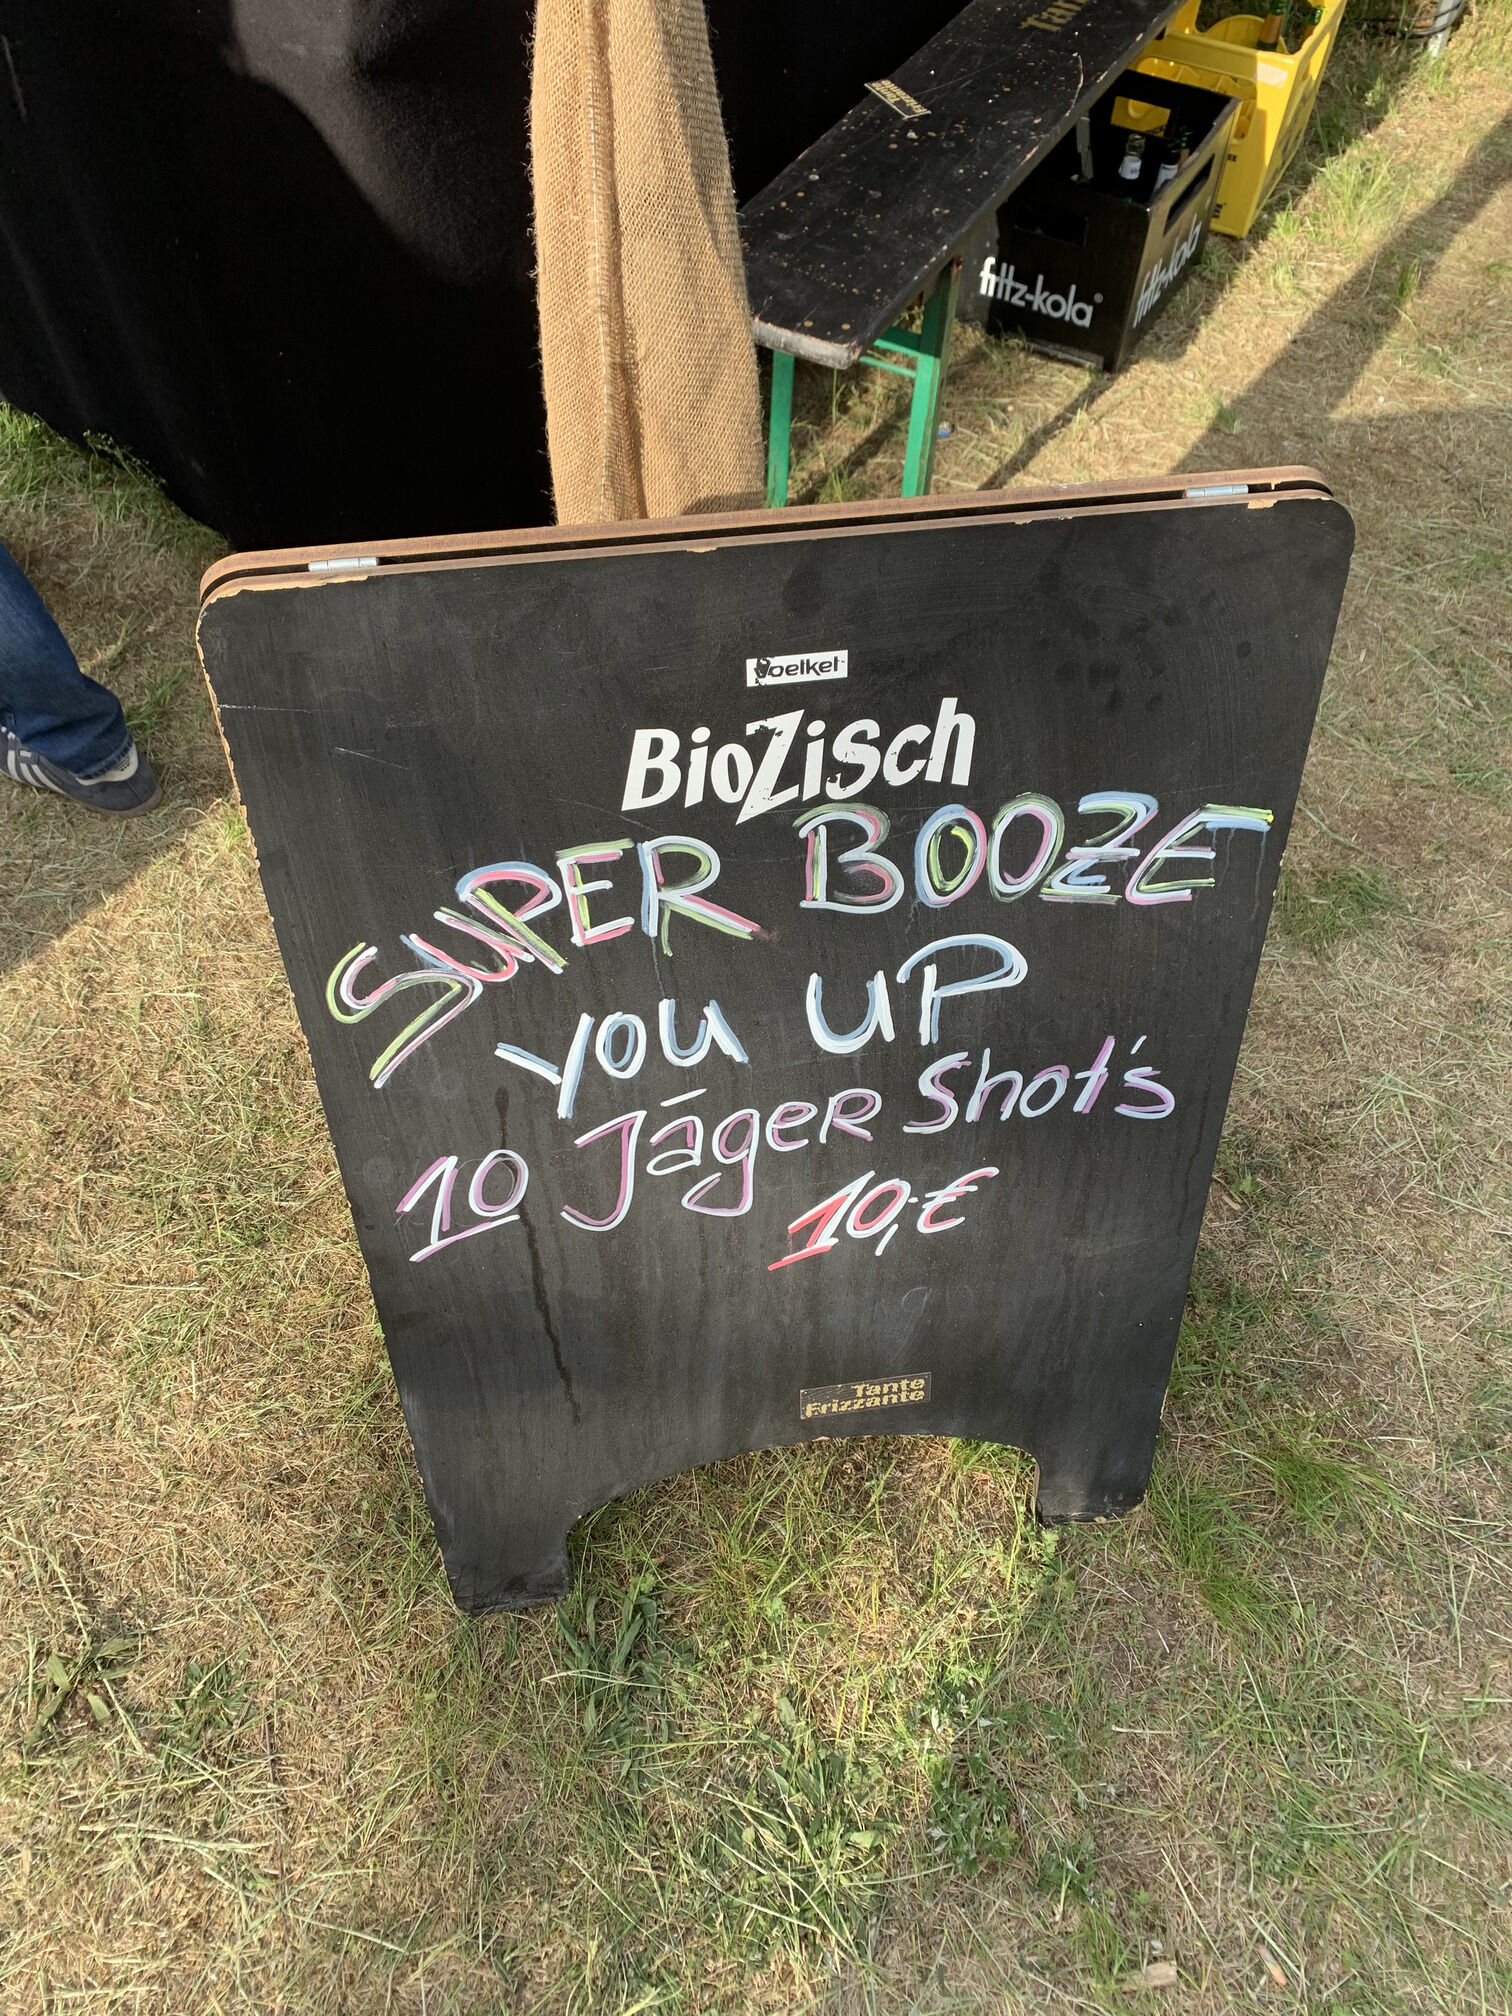 Tante
Frizzante
fritz-kola®
fritz-kola
Voelkel
BioZisch
SUPER BOOZE
you UP
10 Jāger Shot's
10,-€
Tante
Frizzante